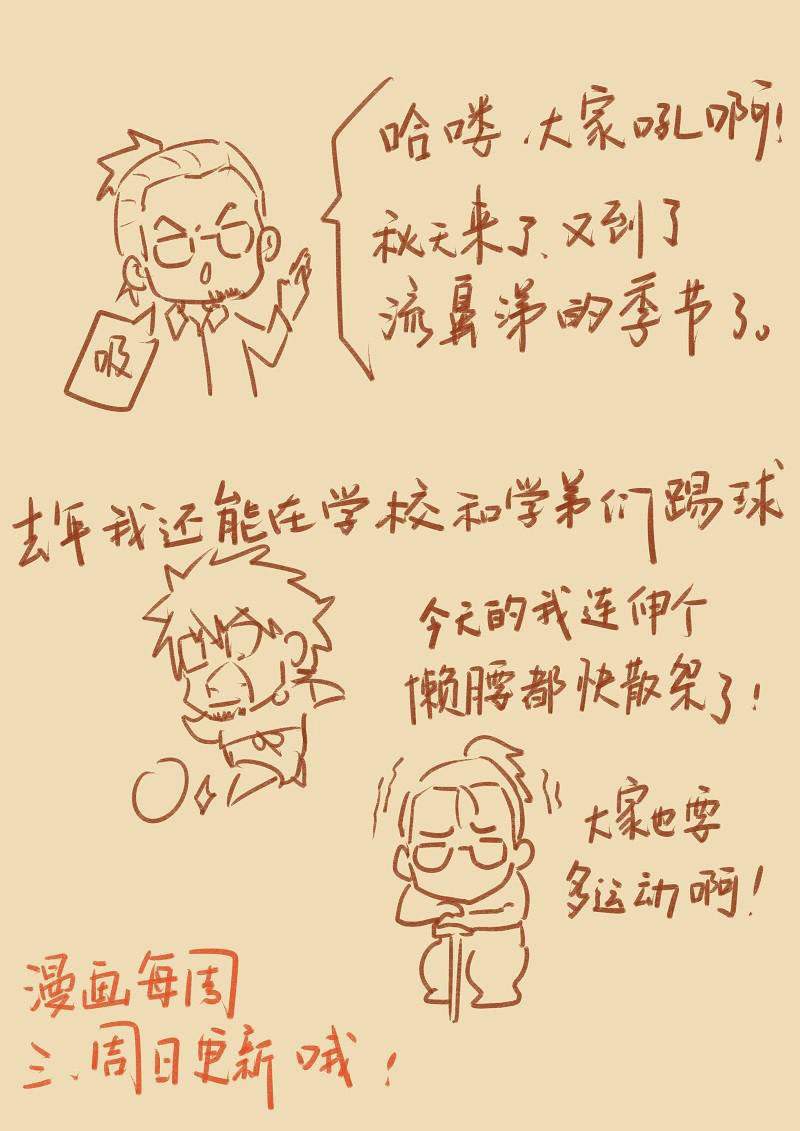 哈喽 大家吼啊!
秋天来了、又到了
流鼻涕的季节了。
吸
去年我还能在学校和学弟们踢球
今天的我连伸个
懒腰都快散架了!
大家也要
多运动啊!
漫画每周
三、周日更新哦!